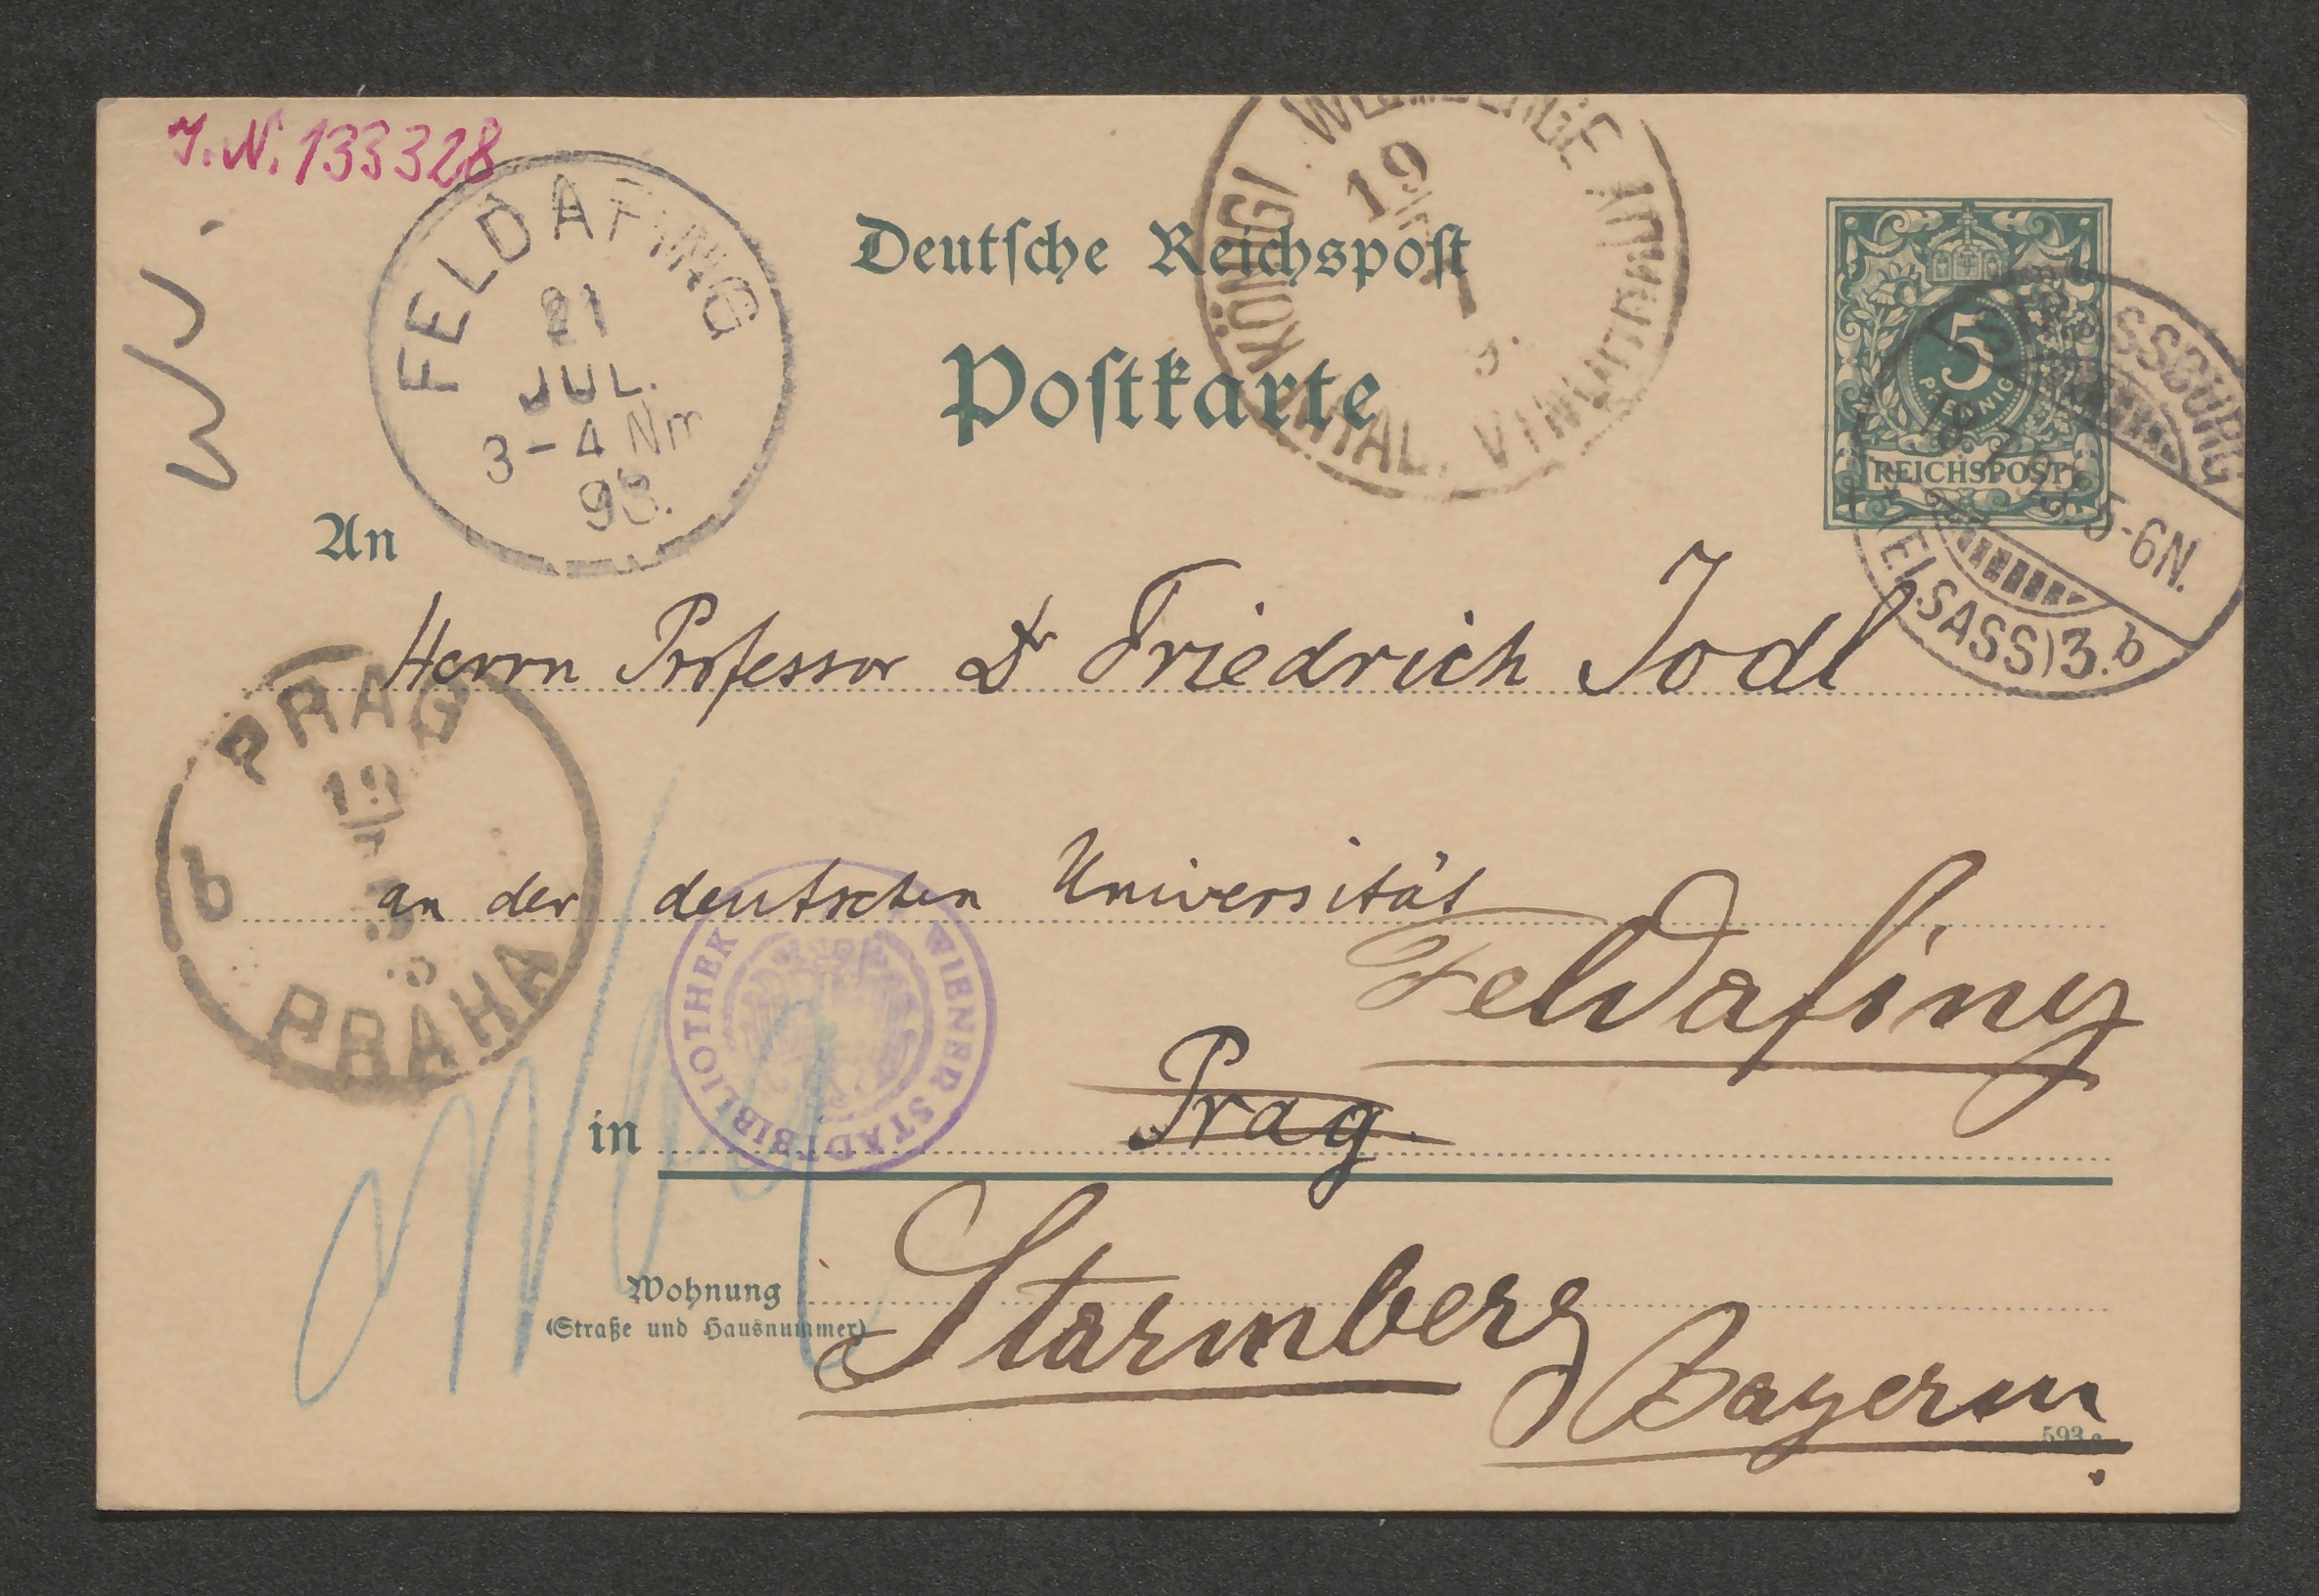 J. N. 133328
FELDAFING
21
JUL.
3-4 Nm
93.
19
7
KÖNIGL. WEINBERGE
KRÁL. VINOHRADY
Deutsche Reichspost
Postkarte
5
PFENNIG
REICHSPOST
STRASSBURG
5-6N.
(ELSASS) 3.b
An
Herrn Professor Dr Friedrich Jodl
PRAG
19
7
PRAHA
an der deutschen Universität
Feldafing
WIENER STADTBIBLIOTHEK
in Prag.
Wohnung
(Straße und Hausnummer)
Starnberg
Bayern
593